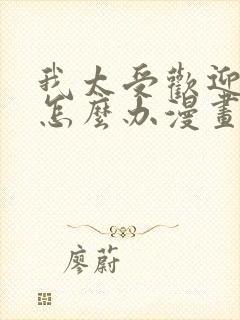 我太受歡迎
怎麼办漫畫
廖蔚